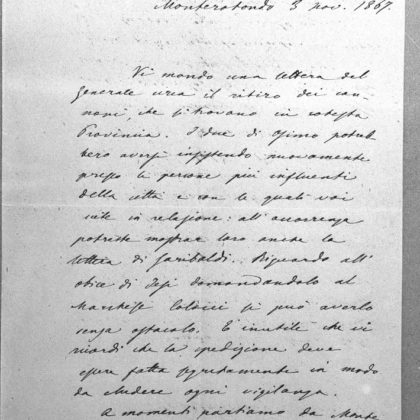 Monterotondo 3 nov. 1867.
Vi mando una lettera del
Generale circa il ritiro dei can-
noni, che si trovano in codesta
Provincia. I due di Osimo potreb
bero aversi insistendo nuovamente
presso le persone più influenti
della città e con le quali voi
siete in relazione: all'occorrenza
potreste mostrar loro anche la
lettera di Garibaldi. Riguardo all'
obice di Jesi domandandolo al
Marchese Colocci si può averlo
senza ostacolo. È inutile che vi
ricordi che la spedizione deve
essere fatta segretamente in modo
da eludere ogni vigilanza.
A momenti partiamo da Monte